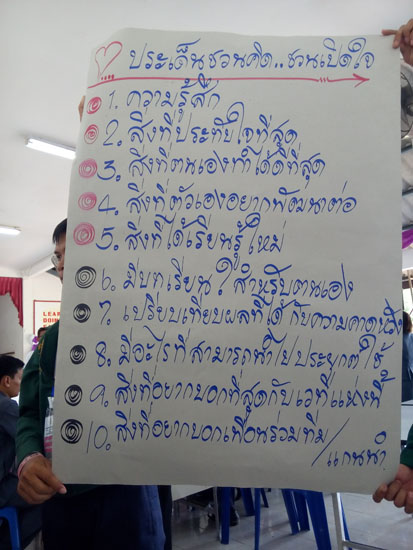 ประเด็นชวนคิด..ชวนเปิดใจ
1. ความรู้สึก
2. สิ่งที่ประทับใจที่สุด
3. สิ่งที่ตนเองทำได้ดีที่สุด
4. สิ่งที่ตัวเองอยากพัฒนาต่อ
5. สิ่งที่ได้เรียนรู้ใหม่
6. มีบทเรียนใดสำหรับตนเอง
7. เปรียบเทียบผลที่ได้กับความคาดหวัง
8. มีอะไรที่สามารถนำไปประยุกต์ใช้
9. สิ่งที่อยากบอกที่สุดกับเวทีแห่งนี้
10. สิ่งที่อยากบอกเพื่อนร่วมทีม/แกนนำ
LEA
DOIN